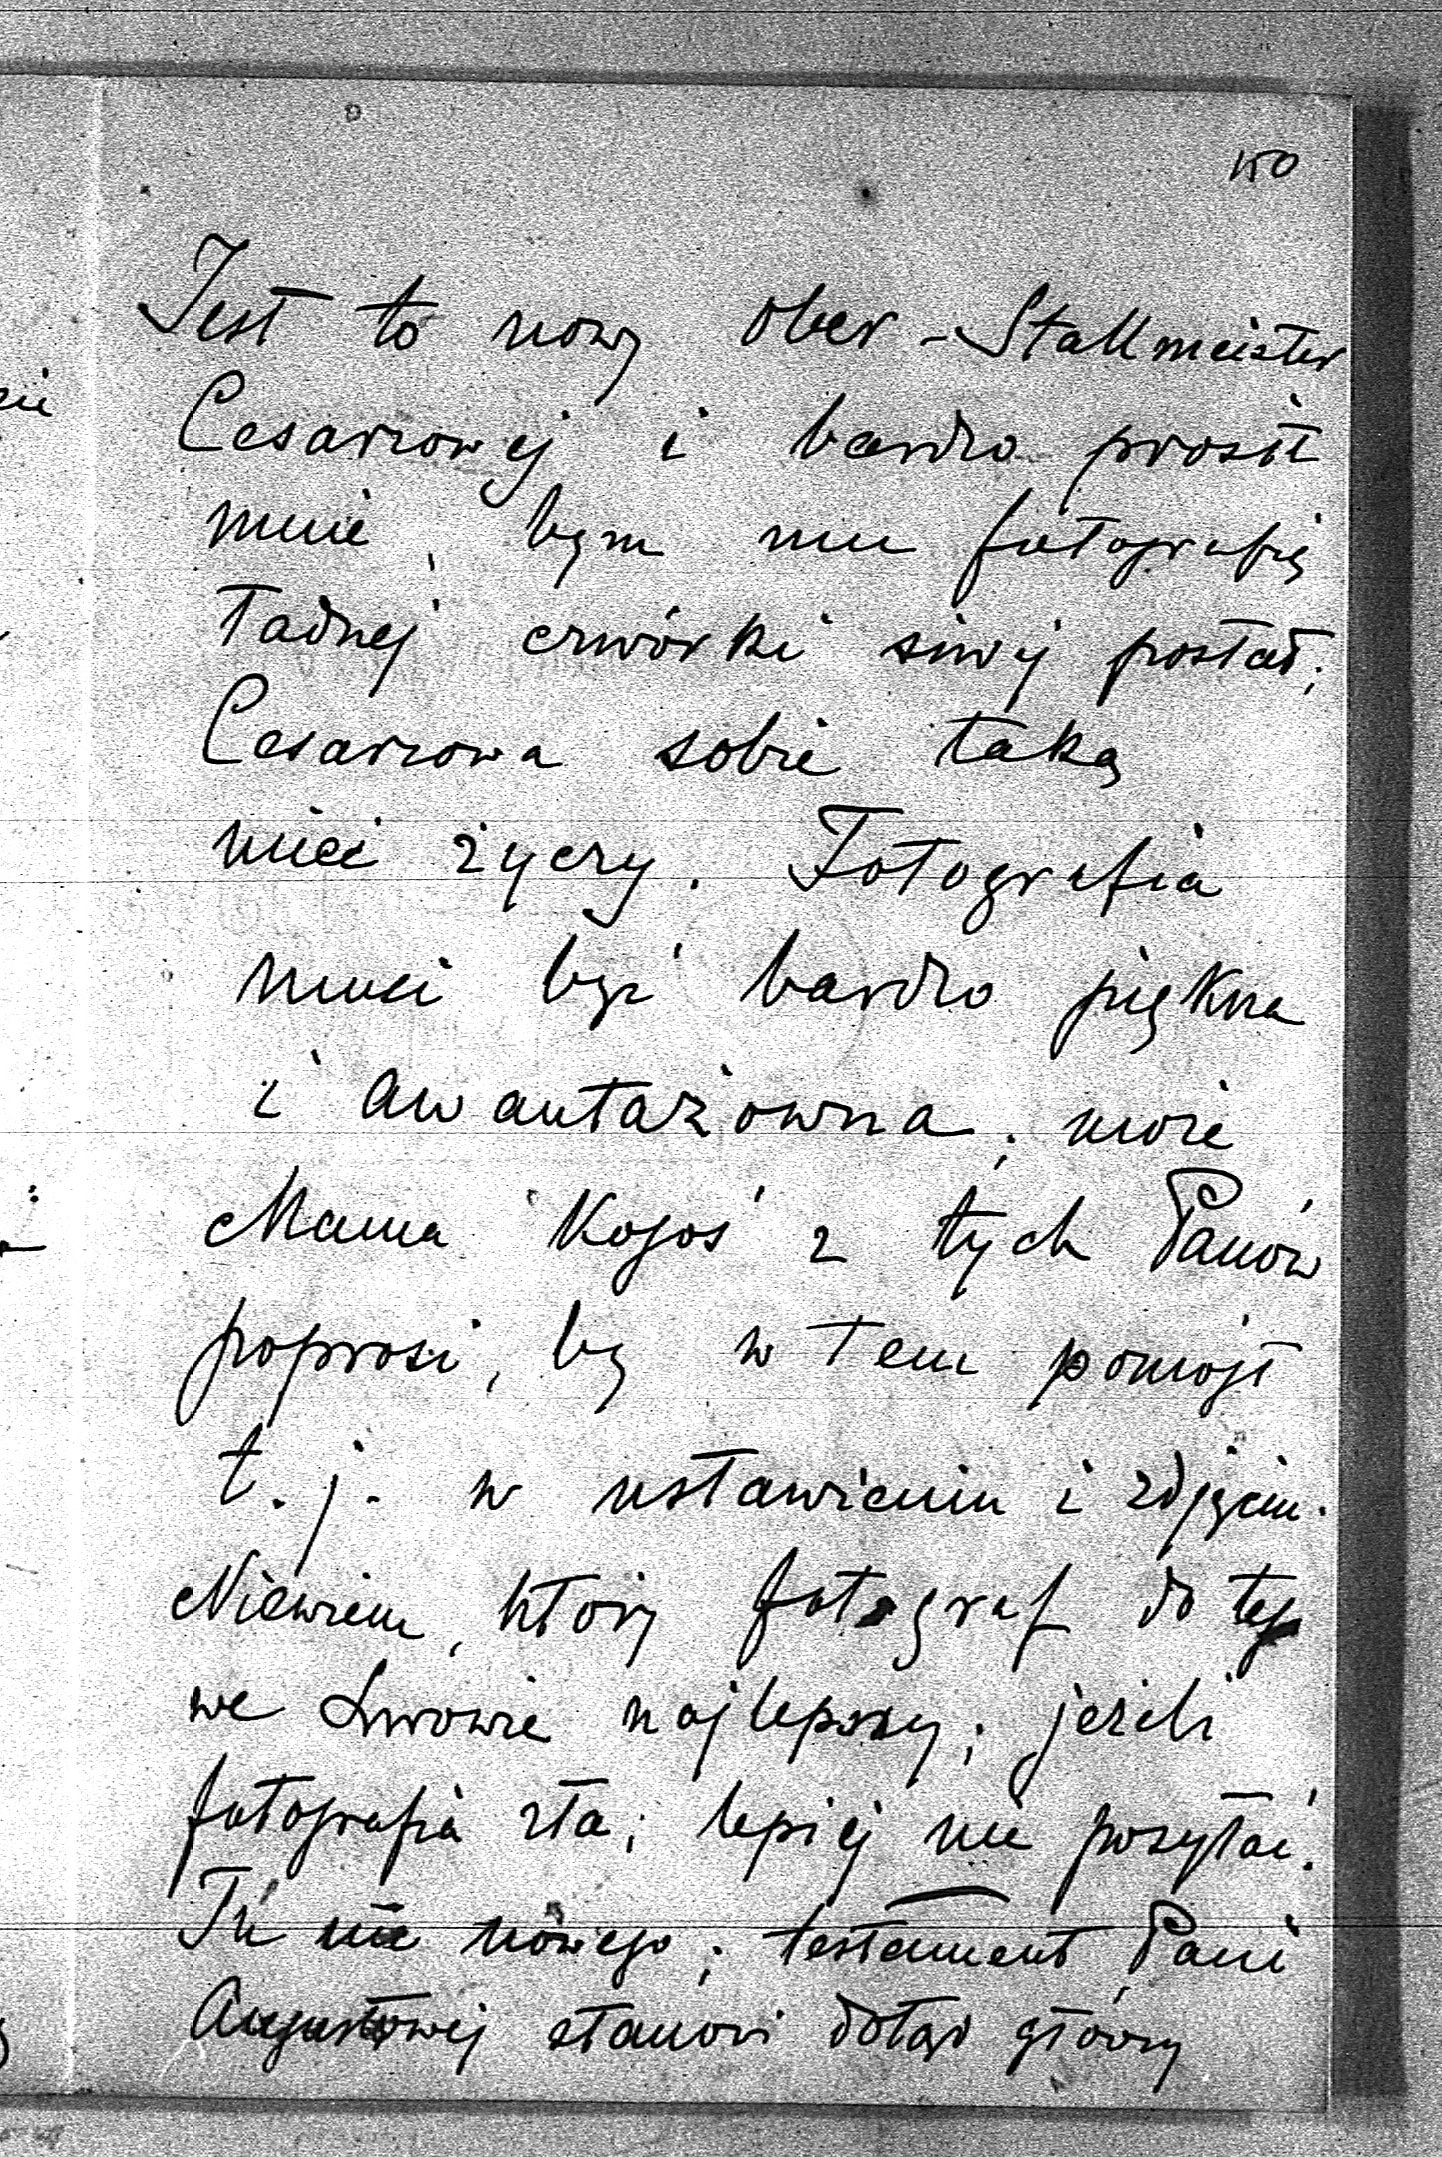 150
Jest to nowy Ober-Stallmeister
Cesarzowej i bardzo prosił
mnie, bym mu fotografię
ładnej czwórki siwej posłał;
Cesarzowa sobie taką
mieć życzy. Fotografia
musi być bardzo piękna
i awantażowna; może
Mama kogoś z tych Panów
poprosi, by w tem pomógł
t.j. w ustawieniu i zdjęciu.
Niewiem, który fotograf do tego
we Lwowie najlepszy; jeżeli
fotografia zła; lepiej nie posyłać.
Tu nic nowego; testament Pani
Augustowej stanowi dotąd główny